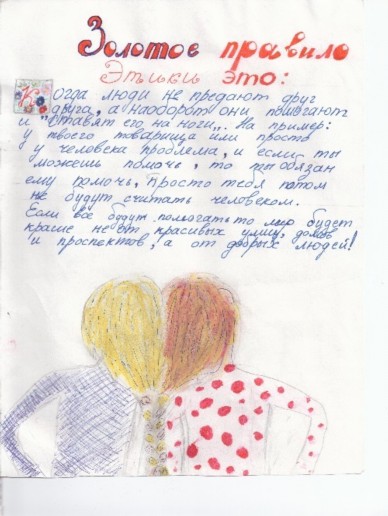 Золотое правило
Этики это:
Когда люди не предают друг
друга, а наоборот они помогают
и "ставят его на ноги". На пример:
у твоего товарища или просто
у человека проблема, и если ты
можешь помочь, то ты обязан
ему помочь, просто тебя потом
не будут считать человеком.
Если все будут помогать то мир будет
краше не от красивых улиц, домов
и проспектов, а от добрых людей!